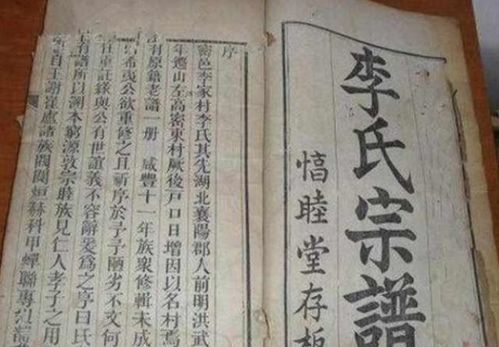 李氏宗譜
愊睦堂存板
序
密邑李家村李氏其先湖北襄陽郡人前明洪武
年遷山左高密東村厥後戶口日增因以名村焉
有原籍老譜一册 咸豐十一年族衆修輯未成
希夷公欲重修之且祈序於予予陋劣不文何
任重註錄與公有世誼義不容辭爰為之序曰氏
有譜所以溯本窮源敦宗睦族見仁人孝子之用
自王謝崔盧諸族閥閱烜赫科甲蟬聯專